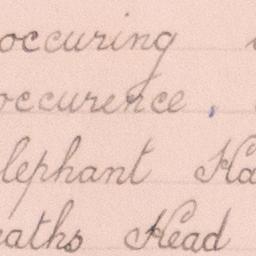 occuring
occurence,
lephant Ha
eaths Head